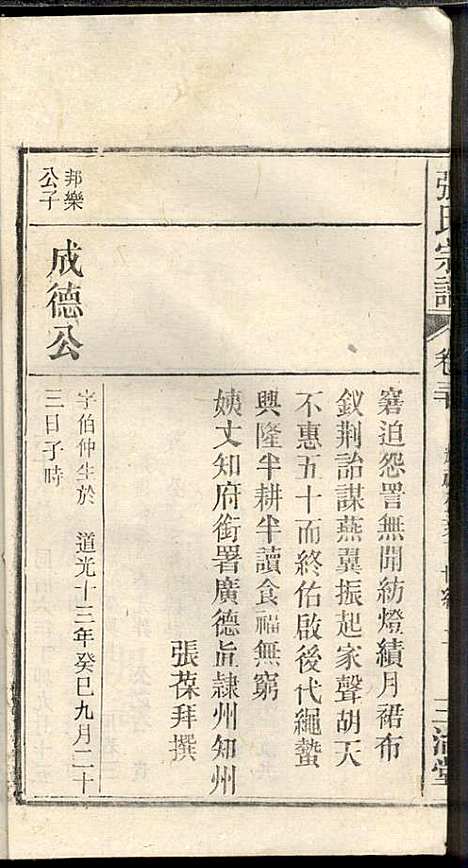 張氏宗譜
窘迫怨詈無聞紡燈績月裙布
釵荆詒謀燕翼振起家聲胡天
不惠五十而終佑啟後代繩蟄
興隆半耕半讀食福無窮
姨丈知府銜署廣德直隸州知州
張葆拜撰
邦樂
公子
成德公
字伯仲生於 道光十三年癸巳九月二十
三日子時